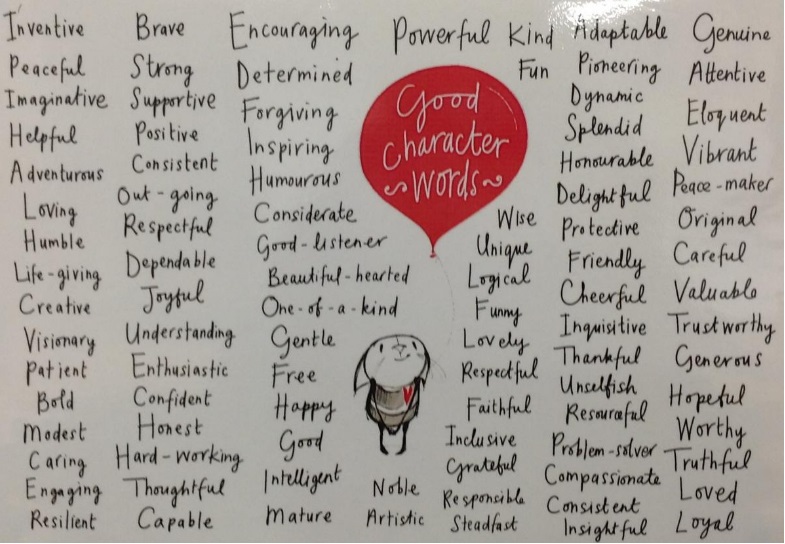 Inventive
Peaceful
Imaginative
Helpful
Adventurous
Loving
Humble
Life-giving
Creative
Visionary
Patient
Bold
Modest
Caring
Engaging
Resilient
Brave
Strong
Supportive
Positive
Consistent
Out-going
Respectful
Dependable
Joyful
Understanding
Enthusiastic
Confident
Honest
Hard-working
Thoughtful
Capable
Encouraging
Determined
Forgiving
Inspiring
Humourous
Considerate
Good-listener
Beautiful-hearted
One-of-a-kind
Gentle
Free
Happy
Good
Intelligent
Mature
Powerful
Good
Character
Words
Noble
Artistic
Kind
Fun
Wise
Unique
Logical
Funny
Lovely
Respectful
Faithful
Inclusive
Grateful
Responsible
Steadfast
Adaptable
Pioneering
Dynamic
Splendid
Honourable
Delightful
Protective
Friendly
Cheerful
Inquisitive
Thankful
Unselfish
Resourceful
Problem-solver
Compassionate
Consistent
Insightful
Genuine
Attentive
Eloquent
Vibrant
Peace-maker
Original
Careful
Valuable
Trustworthy
Generous
Hopeful
Worthy
Truthful
Loved
Loyal